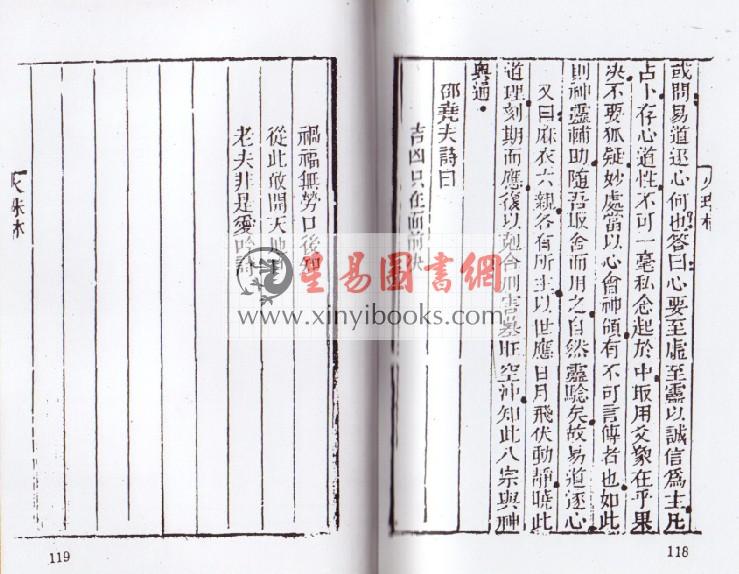 或問易道逐心何也答曰心要至虛至靈以誠信為主凡
占卜存心道性不可一毫私念起於中取用爻象在乎果
決不要狐疑妙處當以心會神領有不可言傳者也如此
則神靈輔助隨吾取舍而用之自然靈驗矣故易道逐心
又曰麻衣六親各有所主以世應日月飛伏動靜曉此
道理刻期而應復以剋合刑害墓旺空沖知此八宗與神
與通
邵堯夫詩曰
吉凶只在面前決
118
禍福無勞口後知
從此敢開天地口
老夫非是愛吟詩
火珠林
119
星易圖書網
www.xinyibooks.com